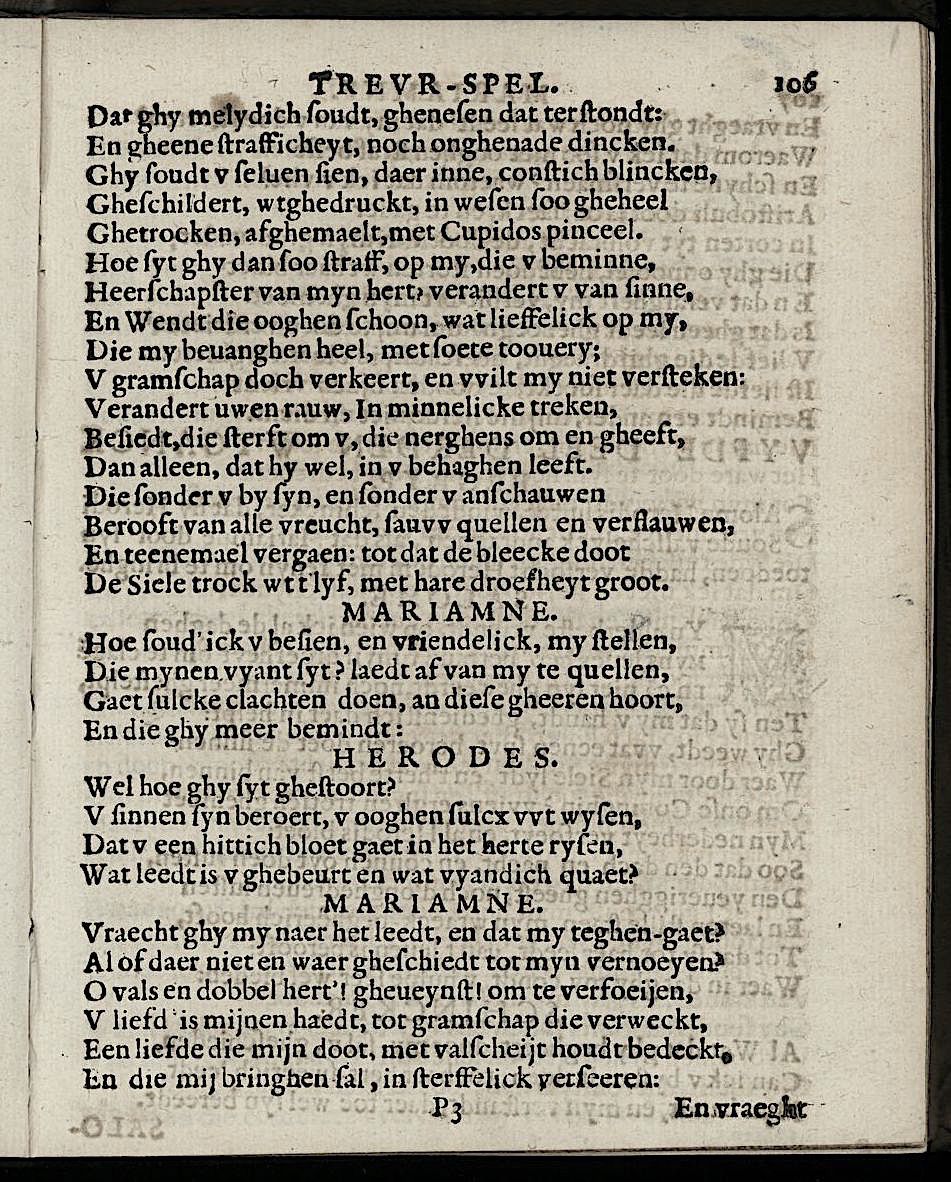 TREVR-SPEL. 106
Dat ghy melydich ſoudt, gheneſen dat terſtondt:
En gheene ſtrafficheyt, noch onghenade dincken.
Ghy ſoudt v ſeluen ſien, daer inne, conſtich blincken,
Gheſchildert, wtghedruckt, in weſen ſoo gheheel
Ghetrocken, afghemaelt, met Cupidos pinceel.
Hoe ſyt ghy dan ſoo ſtraff, op my, die v beminne,
Heerſchapſter van myn hert, verandert v van ſinne,
En Wendt die ooghen ſchoon, wat lieffelick op my,
Die my beuanghen heel, met ſoete toouery;
V gramſchap doch verkeert, en vvilt my niet verſteken:
Verandert uwen rauw, In minnelicke treken,
Beſiedt, die ſterft om v, die nerghens om en gheeft,
Dan alleen, dat hy wel, in v behaghen leeft.
Die ſonder v by ſyn, en ſonder v anſchauwen
Berooft van alle vreucht, ſauvv quellen en verflauwen,
En teenemael vergaen: tot dat de bleecke doot
De Siele trock wt t'lyf, met hare droefheyt groot.
MARIAMNE.
Hoe ſoud'ick v beſien, en vriendelick, my ſtellen,
Die mynen vyant ſyt? laedt af van my te quellen,
Gaet ſulcke clachten doen, an dieſe gheeren hoort,
En die ghy meer bemindt:
HERODES.
Wel hoe ghy ſyt gheſtoort?
V ſinnen ſyn beroert, v ooghen ſulcx vvt wyſen,
Dat v een hittich bloet gaet in het herte ryſen,
Wat leedt is v ghebeurt en wat vyandich quaet?
MARIAMNE.
Vraecht ghy my naer het leedt, en dat my teghen-gaet?
Al of daer niet en waer gheſchiedt tot myn vernoeyen?
O vals en dobbel hert'! gheueynſt! om te verfoeijen,
V liefd'is mijnen haedt, tot gramſchap die verweckt,
Een liefde die mijn doot, met valſcheijt houdt bedeckt,
En die mij bringhen ſal, in ſterffelick verſeeren:
P3 En vraeght